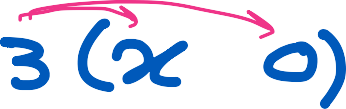 3 (x 0)